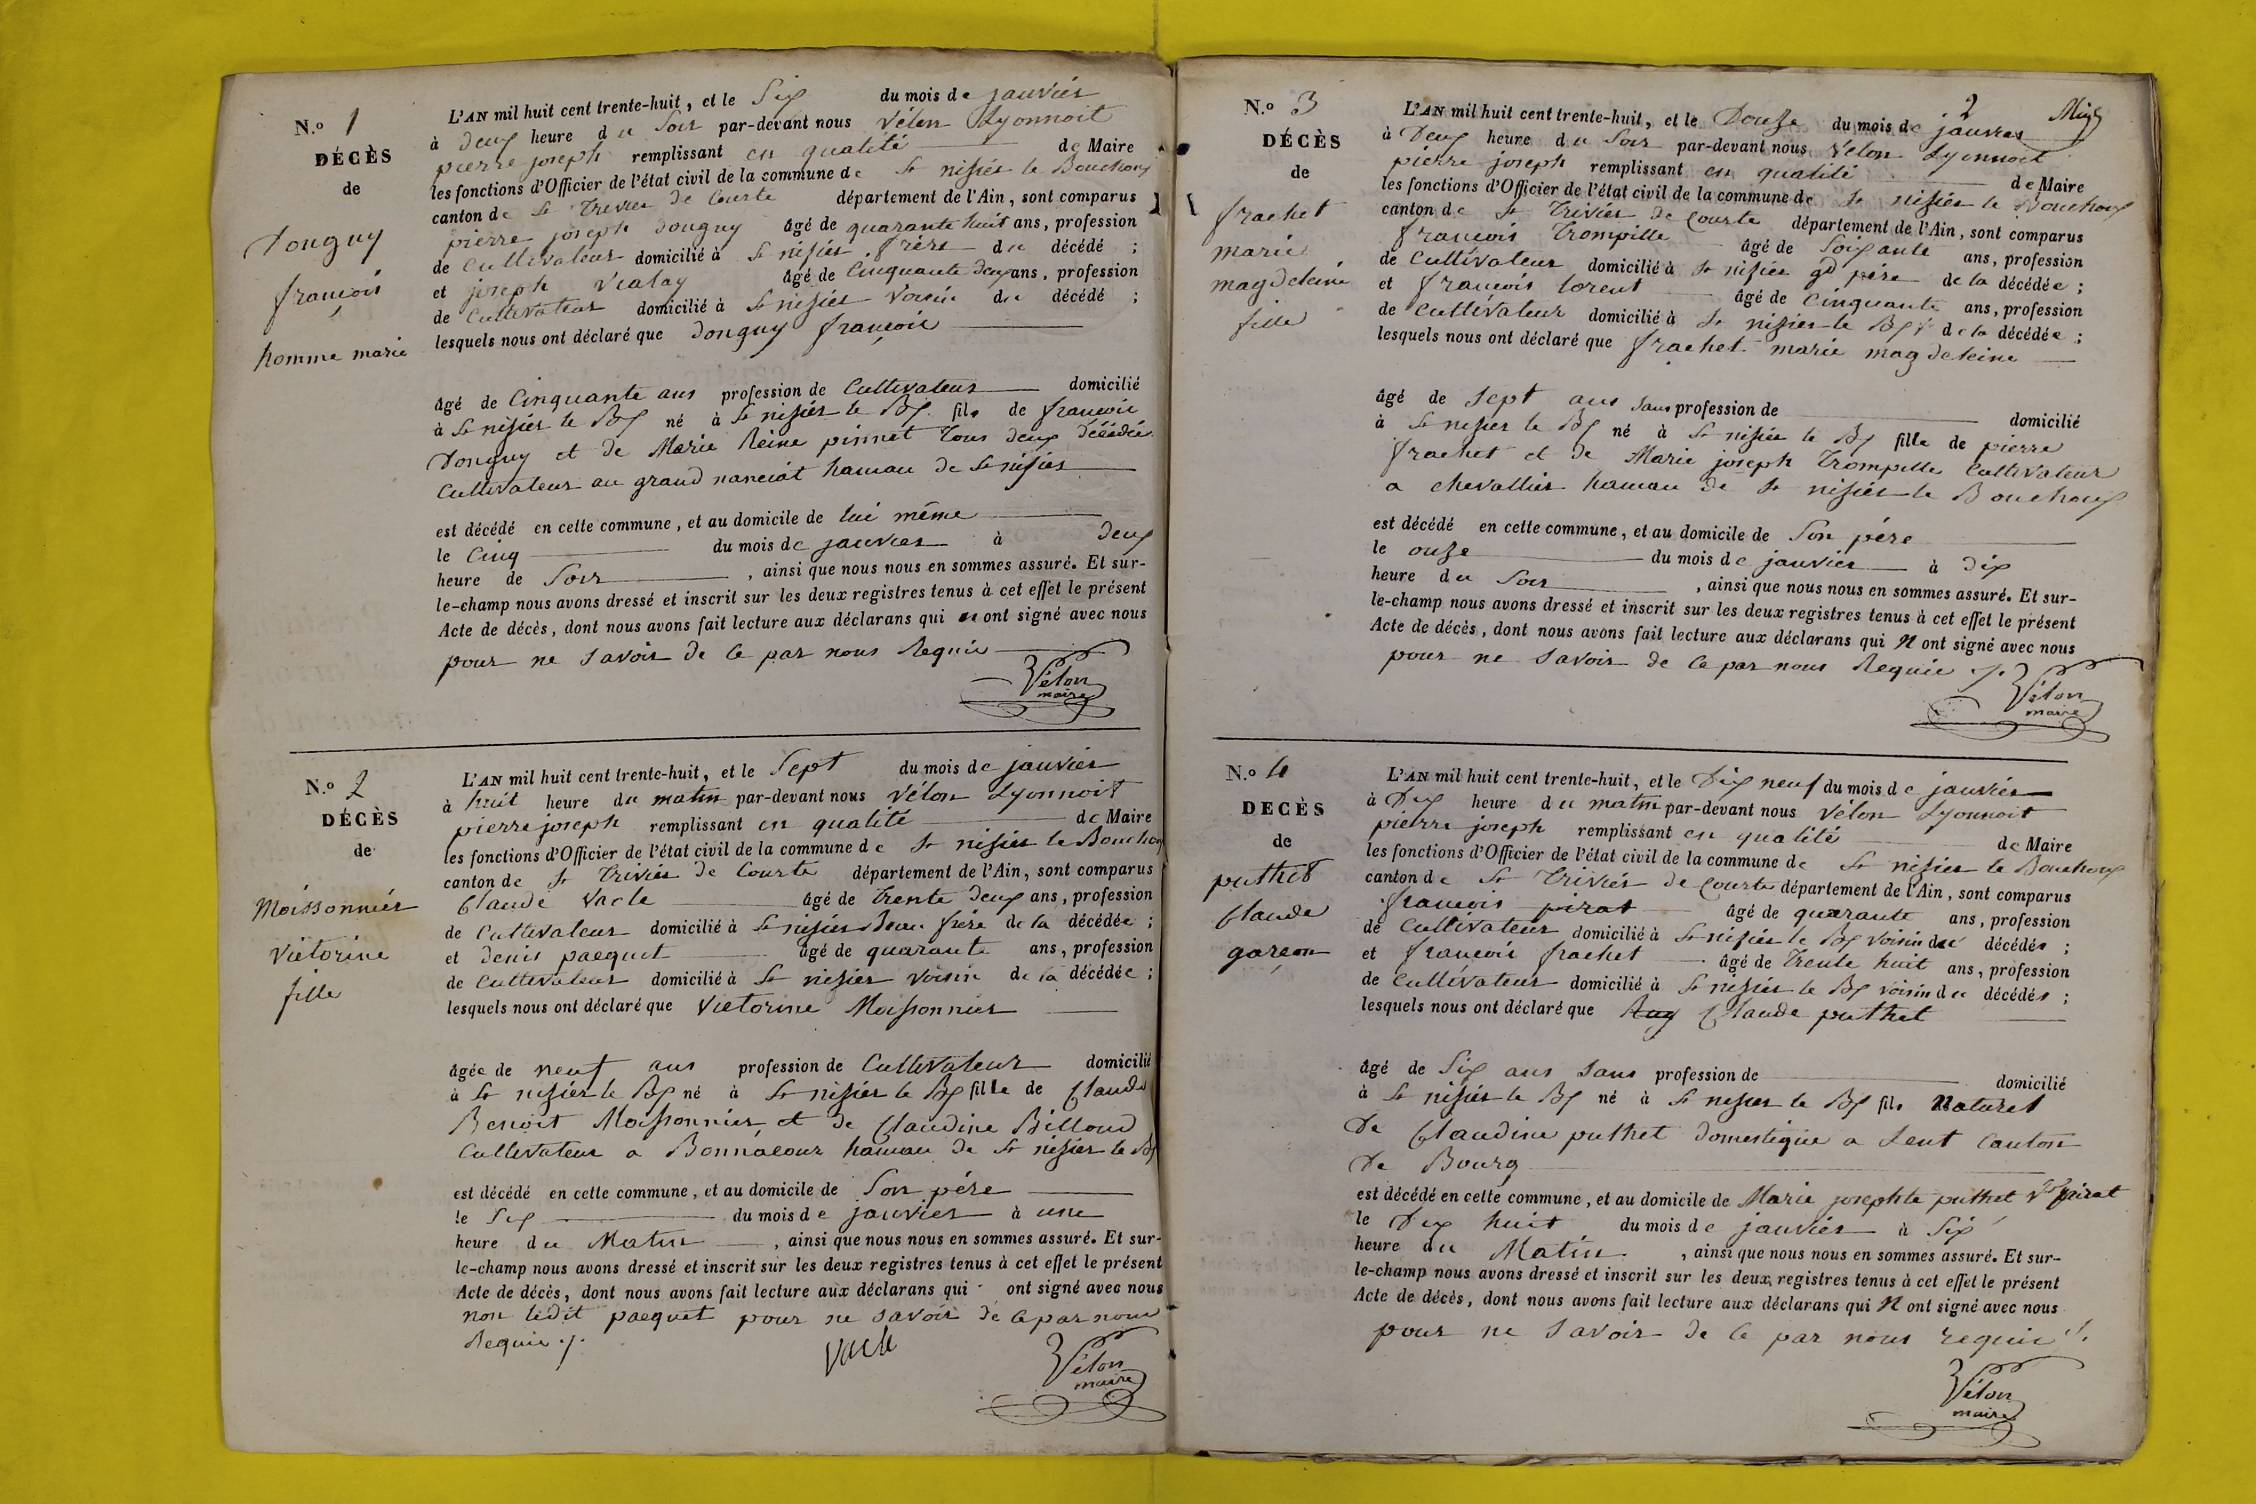 N.º 1
DÉCÈS
de
Donguy
françois
homme marié
L'AN mil huit cent trente-huit, et le Six du mois de janvier
à deux heure du Soir par-devant nous Vélon Lyonnoit
pierre joseph remplissant en qualité de Maire
les fonctions d'Officier de l'état civil de la commune de St nisier le Bouchoux
canton de St Trivier de Courte département de l'Ain, sont comparus
pierre joseph donguy âgé de quarante huit ans, profession
de Cultivateur domicilié à St nisier frère du décédé ;
et joseph Vialay âgé de Cinquante deux ans, profession
de Cultivateur domicilié à St nisier voisin du décédé ;
lesquels nous ont déclaré que donguy françois
âgé de Cinquante ans profession de Cultivateur domicilié
à St nisier le Bx né à St nisier le Bx fils de françois
Donguy et de Marie Reine pinnet tous deux décédés
Cultivateur au grand nanciat hamau de St nisier
est décédé en cette commune, et au domicile de lui même
le Cinq du mois de janvier à deux
heure de Soir, ainsi que nous nous en sommes assuré. Et sur-
le-champ nous avons dressé et inscrit sur les deux registres tenus à cet effet le présent
Acte de décès, dont nous avons fait lecture aux déclarans qui n ont signé avec nous
pour ne savoir de ce par nous Requis
Vélon
maire
N.º 2
DÉCÈS
de
Moissonnier
Victorine
fille
L'AN mil huit cent trente-huit, et le Sept du mois de janvier
à huit heure du matin par-devant nous Vélon Lyonnoit
pierre joseph remplissant en qualité de Maire
les fonctions d'Officier de l'état civil de la commune de St nisier le Bouchoux
canton de St Trivier de Courte département de l'Ain, sont comparus
Claude Vacle âgé de trente deux ans, profession
de Cultivateur domicilié à St nisier beau frère de la décédée ;
et denis pacquet âgé de quarante ans, profession
de Cultivateur domicilié à St nisier voisin de la décédée ;
lesquels nous ont déclaré que Victorine Moissonnier
âgée de neuf ans profession de Cultivateur domicilié
à St nisier le Bx né à St nisier le Bx fille de Claude
Benoit Moissonnier et de Claudine Billoud
Cultivateur a Bonnacour hamau de St nisier le Bx
est décédé en cette commune, et au domicile de Son père
le Six du mois de janvier à une
heure du Matin, ainsi que nous nous en sommes assuré. Et sur-
le-champ nous avons dressé et inscrit sur les deux registres tenus à cet effet le présent
Acte de décès, dont nous avons fait lecture aux déclarans qui ont signé avec nous
non ledit pacquet pour ne savoir de ce par nous
Requis ./.
Vacle
Vélon
maire
2
N.º 3
DÉCÈS
de
frachet
marie
magdeleine
fille
L'AN mil huit cent trente-huit, et le Douze du mois de janvier
à Deux heure du Soir par-devant nous Vélon Lyonnoit
pierre joseph remplissant en qualité de Maire
les fonctions d'Officier de l'état civil de la commune de St nisier le Bouchoux
canton de St Trivier de Courte département de l'Ain, sont comparus
françois Trompille âgé de Soixante ans, profession
de Cultivateur domicilié à St nisier gd père de la décédée ;
et françois lorent âgé de Cinquante ans, profession
de Cultivateur domicilié à St nisier le Bx v de la décédée ;
lesquels nous ont déclaré que frachet marie magdeleine
âgé de Sept ans sans profession de domicilié
à St nisier le Bx né à St nisier le Bx fille de pierre
frachet et de Marie joseph Trompille Cultivateur
a chevallier hamau de St nisier le Bouchoux
est décédé en cette commune, et au domicile de Son père
le onze du mois de janvier à dix
heure du Soir, ainsi que nous nous en sommes assuré. Et sur-
le-champ nous avons dressé et inscrit sur les deux registres tenus à cet effet le présent
Acte de décès, dont nous avons fait lecture aux déclarans qui n ont signé avec nous
pour ne savoir de ce par nous Requis ./.
Vélon
maire
N.º 4
DECÈS
de
puthet
Claude
garçon
L'AN mil huit cent trente-huit, et le Dix neuf du mois de janvier
à Dix heure du matin par-devant nous Vélon Lyonnoit
pierre joseph remplissant en qualité de Maire
les fonctions d'Officier de l'état civil de la commune de St nisier le Bouchoux
canton de St Trivier de Courte département de l'Ain, sont comparus
françois pirat âgé de quarante ans, profession
de Cultivateur domicilié à St nisier le Bx voisin du décédé ;
et françois frachet âgé de Trente huit ans, profession
de Cultivateur domicilié à St nisier le Bx voisin du décédé ;
lesquels nous ont déclaré que Claude puthet
âgé de Six ans sans profession de domicilié
à St nisier le Bx né à St nisier le Bx fils Naturel
De Claudine puthet domestique a Lent Canton
De Bourg
est décédé en cette commune, et au domicile de Marie josephte puthet Ve pirat
le Dix huit du mois de janvier à Six
heure du Matin, ainsi que nous nous en sommes assuré. Et sur-
le-champ nous avons dressé et inscrit sur les deux registres tenus à cet effet le présent
Acte de décès, dont nous avons fait lecture aux déclarans qui n ont signé avec nous
pour ne savoir de ce par nous requis ./.
Vélon
maire